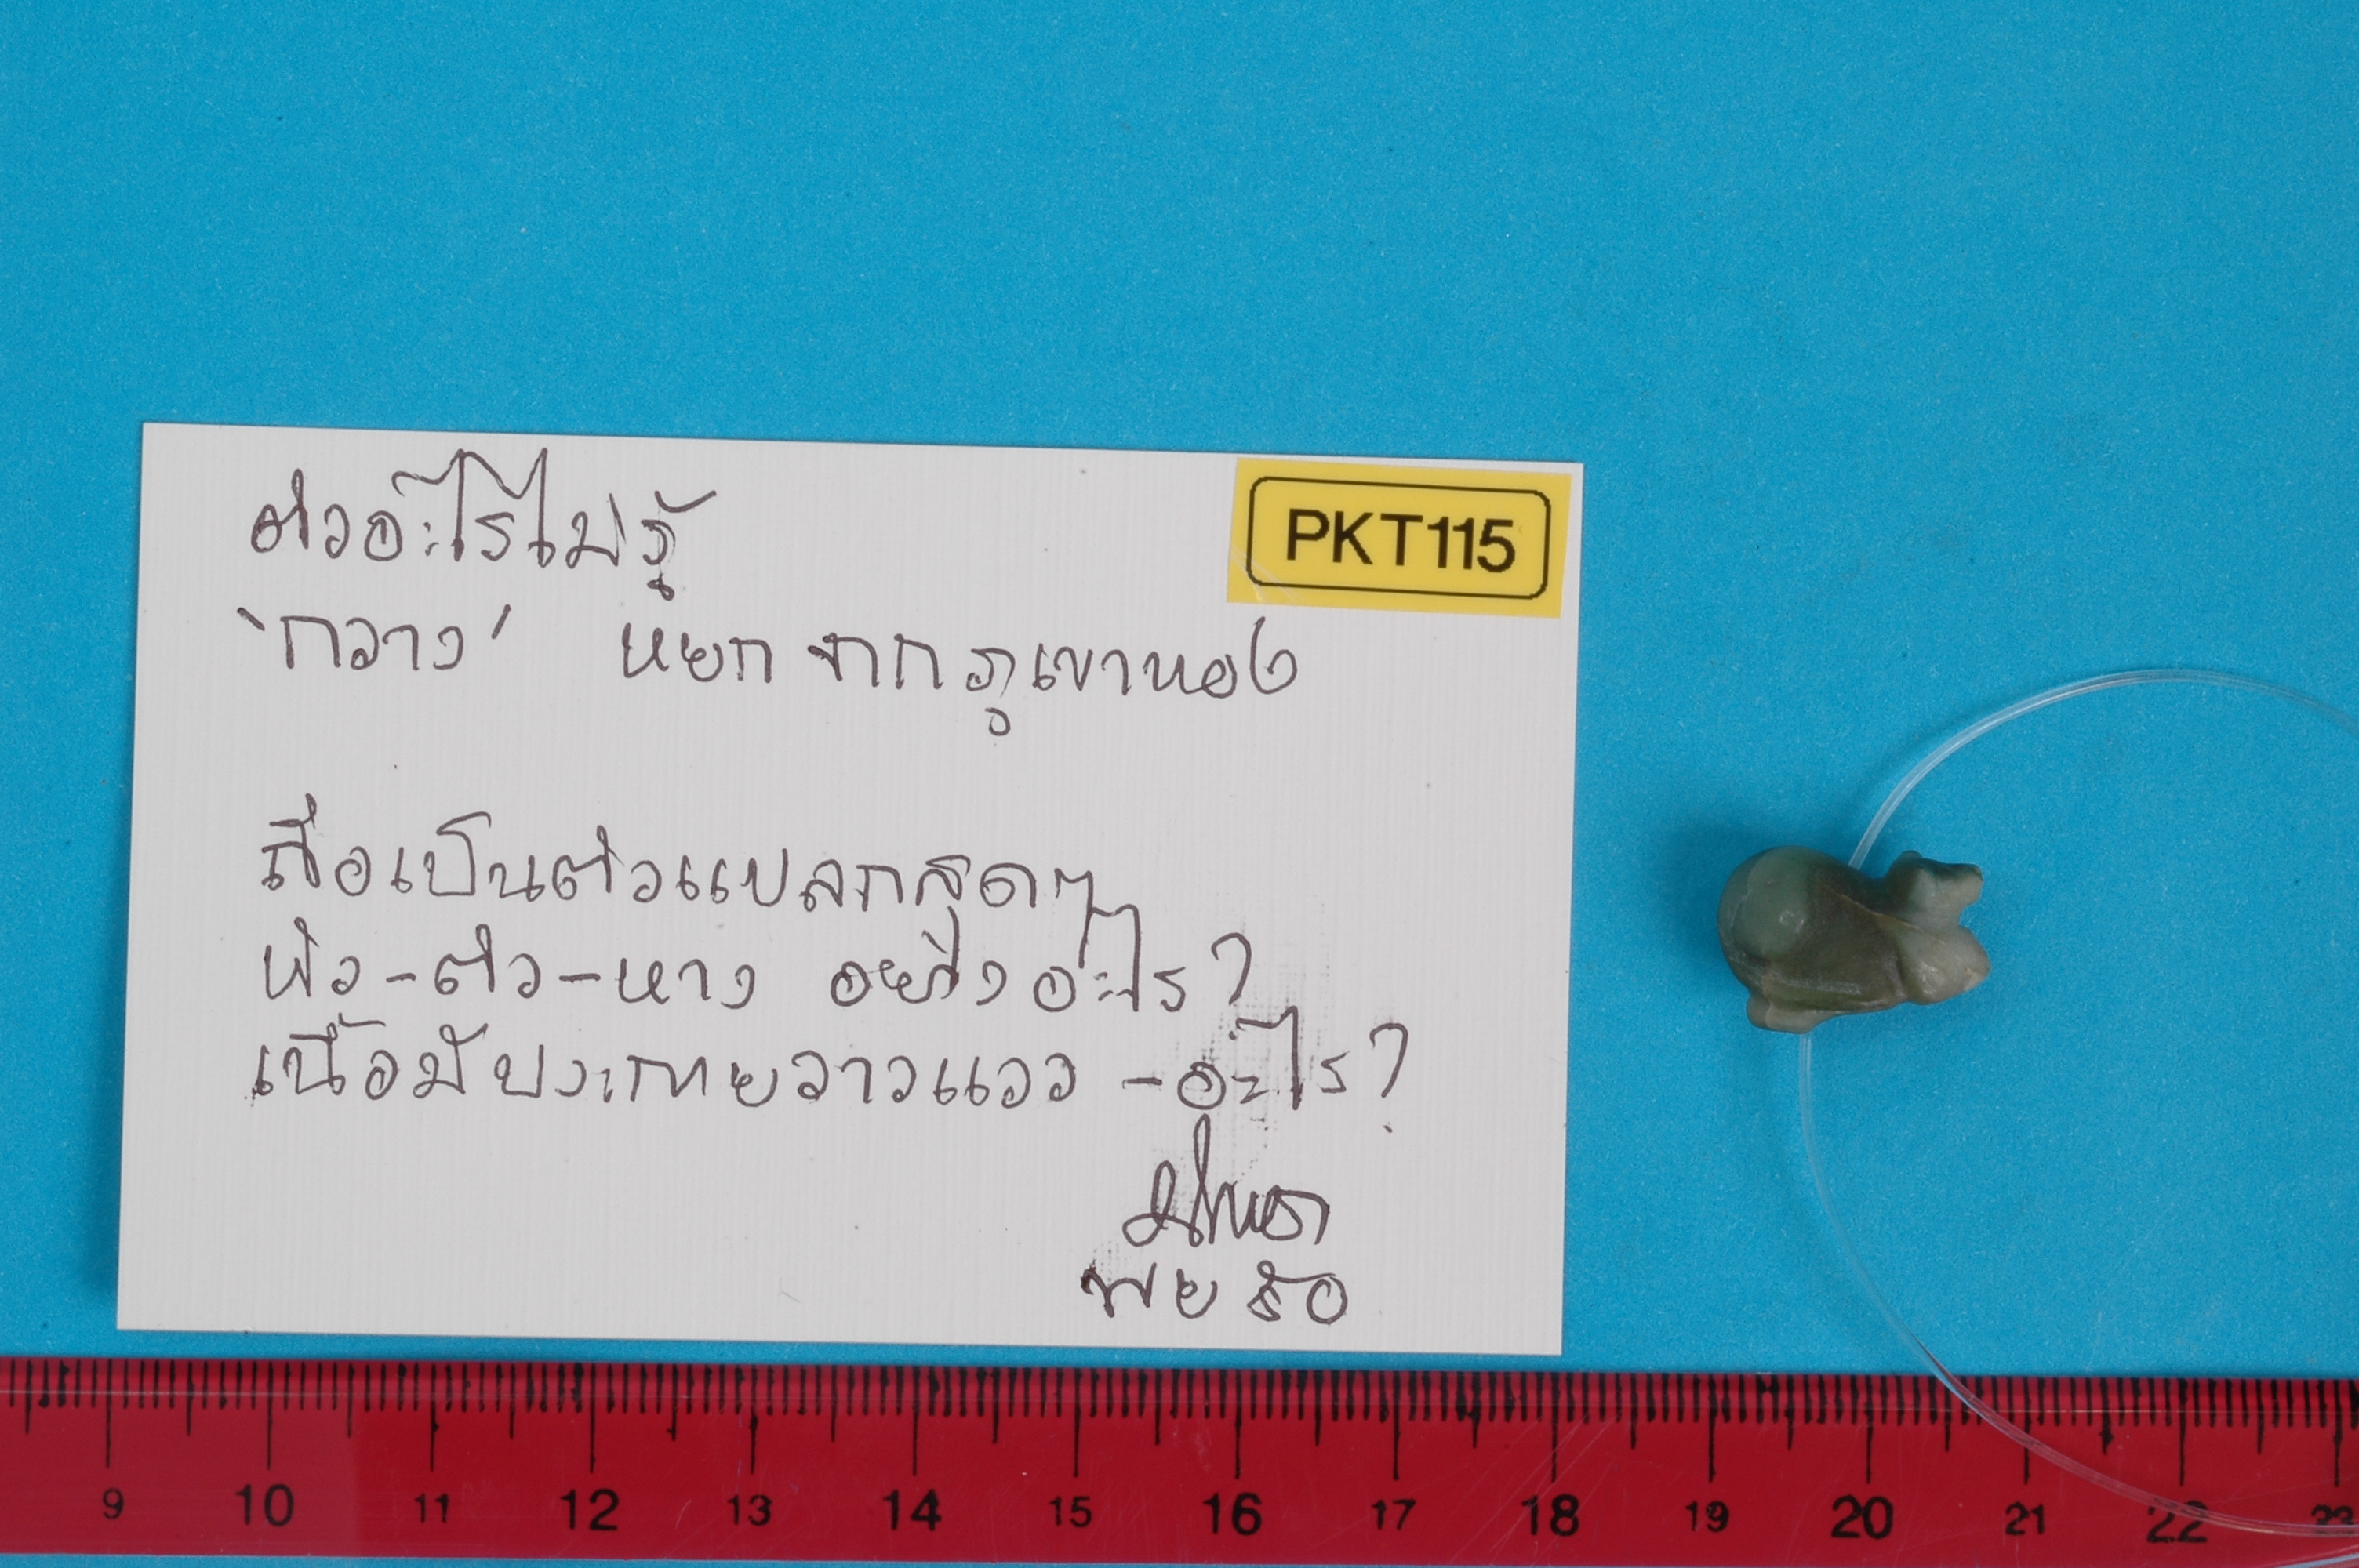 ตัวอะไรไม่รู้
PKT115
'กวาง' หยก จากภูเขาทอง
ถือเป็นตัวแปลกสุดๆ
หัว-ตัว-หาง อย่างอะไร?
เนื้อมีประกายวาวแวว - อะไร?
9 10 11 12 13 14 15 16 17 18 19 20 21 22 23